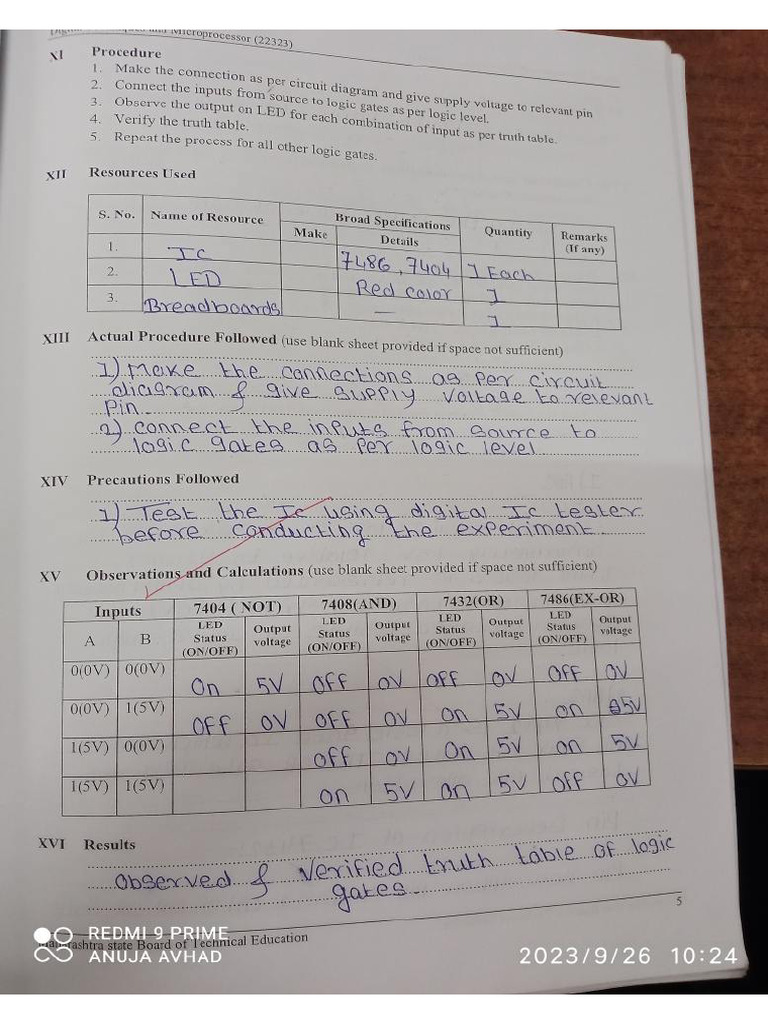 Microprocessor (22323)
XI Procedure
1. Make the connection as per circuit diagram and give supply voltage to relevant pin
2. Connect the inputs from source to logic gates as per logic level.
3. Observe the output on LED for each combination of input as per truth table.
4. Verify the truth table.
5. Repeat the process for all other logic gates.
XII Resources Used
S. No. Name of Resource Broad Specifications Quantity Remarks (If any)
Make Details
1. Ic 7486, 7404 1 Each
2. LED Red color 1
3. Breadboards — 1
XIII Actual Procedure Followed (use blank sheet provided if space not sufficient)
1) Make the connections as per circuit
diagram & give supply voltage to relevant
pin.
2) connect the inputs from source to
logic gates as per logic level
XIV Precautions Followed
1) Test the Ic using digital Ic tester
before conducting the experiment
XV Observations and Calculations (use blank sheet provided if space not sufficient)
Inputs 7404 ( NOT) 7408(AND) 7432(OR) 7486(EX-OR)
A B LED Status (ON/OFF) Output voltage LED Status (ON/OFF) Output voltage LED Status (ON/OFF) Output voltage LED Status (ON/OFF) Output voltage
0(0V) 0(0V) On 5V Off 0V Off 0V Off 0V
0(0V) 1(5V) Off 0V Off 0V on 5V on 5V
1(5V) 0(0V) Off 0V On 5V on 5V
1(5V) 1(5V) on 5V on 5V Off 0V
XVI Results
Observed & Verified truth table of logic
gates.
5
Maharashtra state Board of Technical Education
REDMI 9 PRIME
ANUJA AVHAD
2023/9/26 10:24